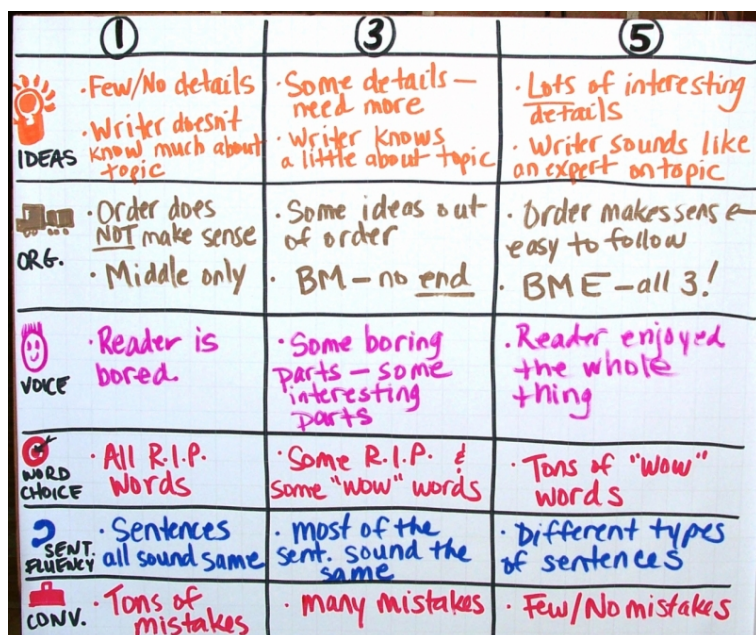 1
3
5
IDEAS
· Few/No details
· Writer doesn't
know much about
topic
· Some details —
need more
· Writer knows
a little about topic
· Lots of interesting
details
· Writer sounds like
an expert on topic
ORG.
· Order does
NOT make sense
· Middle only
· Some ideas out
of order
· BM – no end
· Order makes sense
easy to follow
· BME – all 3!
VOICE
· Reader is
bored.
· Some boring
parts – some
interesting
parts
· Reader enjoyed
the whole
thing
WORD
CHOICE
· All R.I.P.
words
· Some R.I.P. &
some "wow" words
· Tons of "wow"
words
SENT.
FLUENCY
· Sentences
all sound same
· most of the
sent. sound the
same
· Different types
of sentences
CONV.
· Tons of
mistakes
· many mistakes
· Few/No mistakes